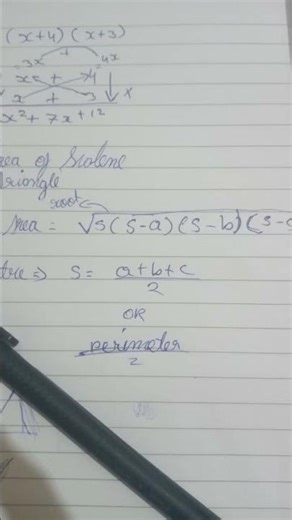 (x+4) (x+3)
3x + 4x
x + 4
x + 3 x
x² + 7x + 12
rea of Scalene
Triangle
root
Area = √s(s-a)(s-b)(s-c
⇒ s = a+b+c
2
OR
perimeter
2